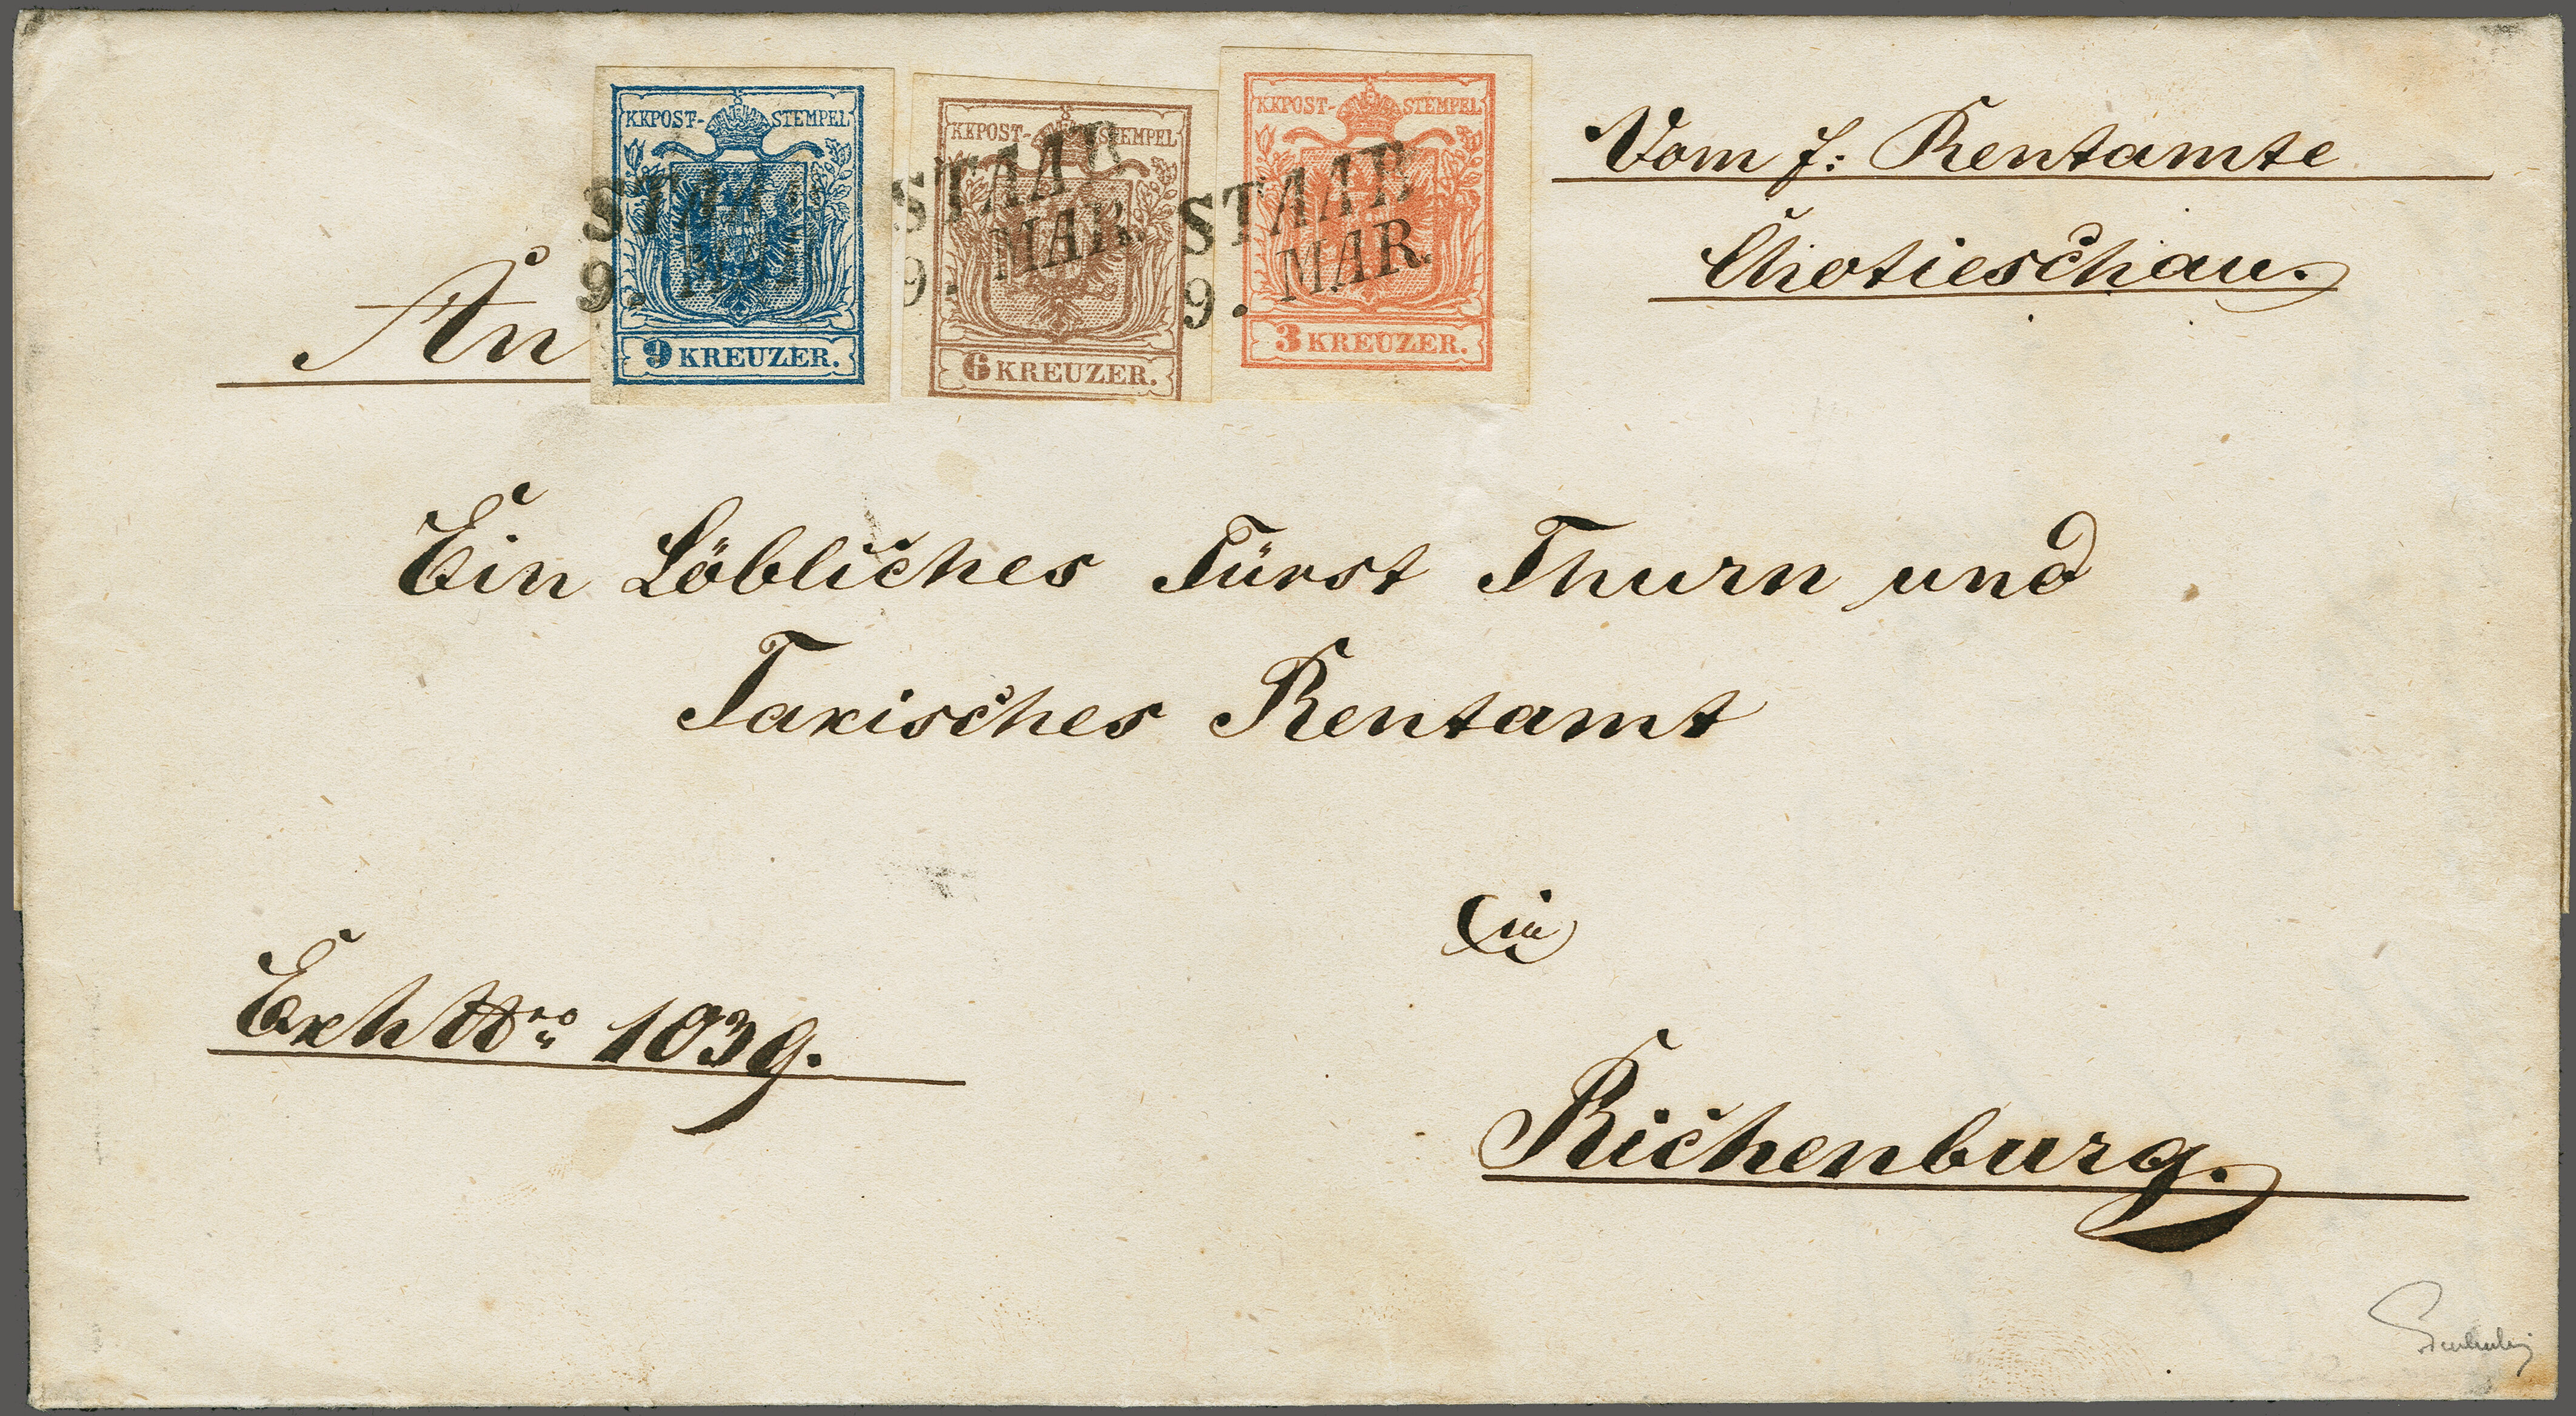 KKPOST-STEMPEL
9 KREUZER.
STAAB
9. MAR.
KKPOST-STEMPEL
6 KREUZER.
STAAB
9. MAR.
KKPOST-STEMPEL
3 KREUZER.
STAAB
9. MAR.
Vom f: Rentamte
Chotieschau.
An
Ein Löbliches Fürst Thurn und
Taxisches Rentamt
in
Exh Nro 1039.
Richenburg.